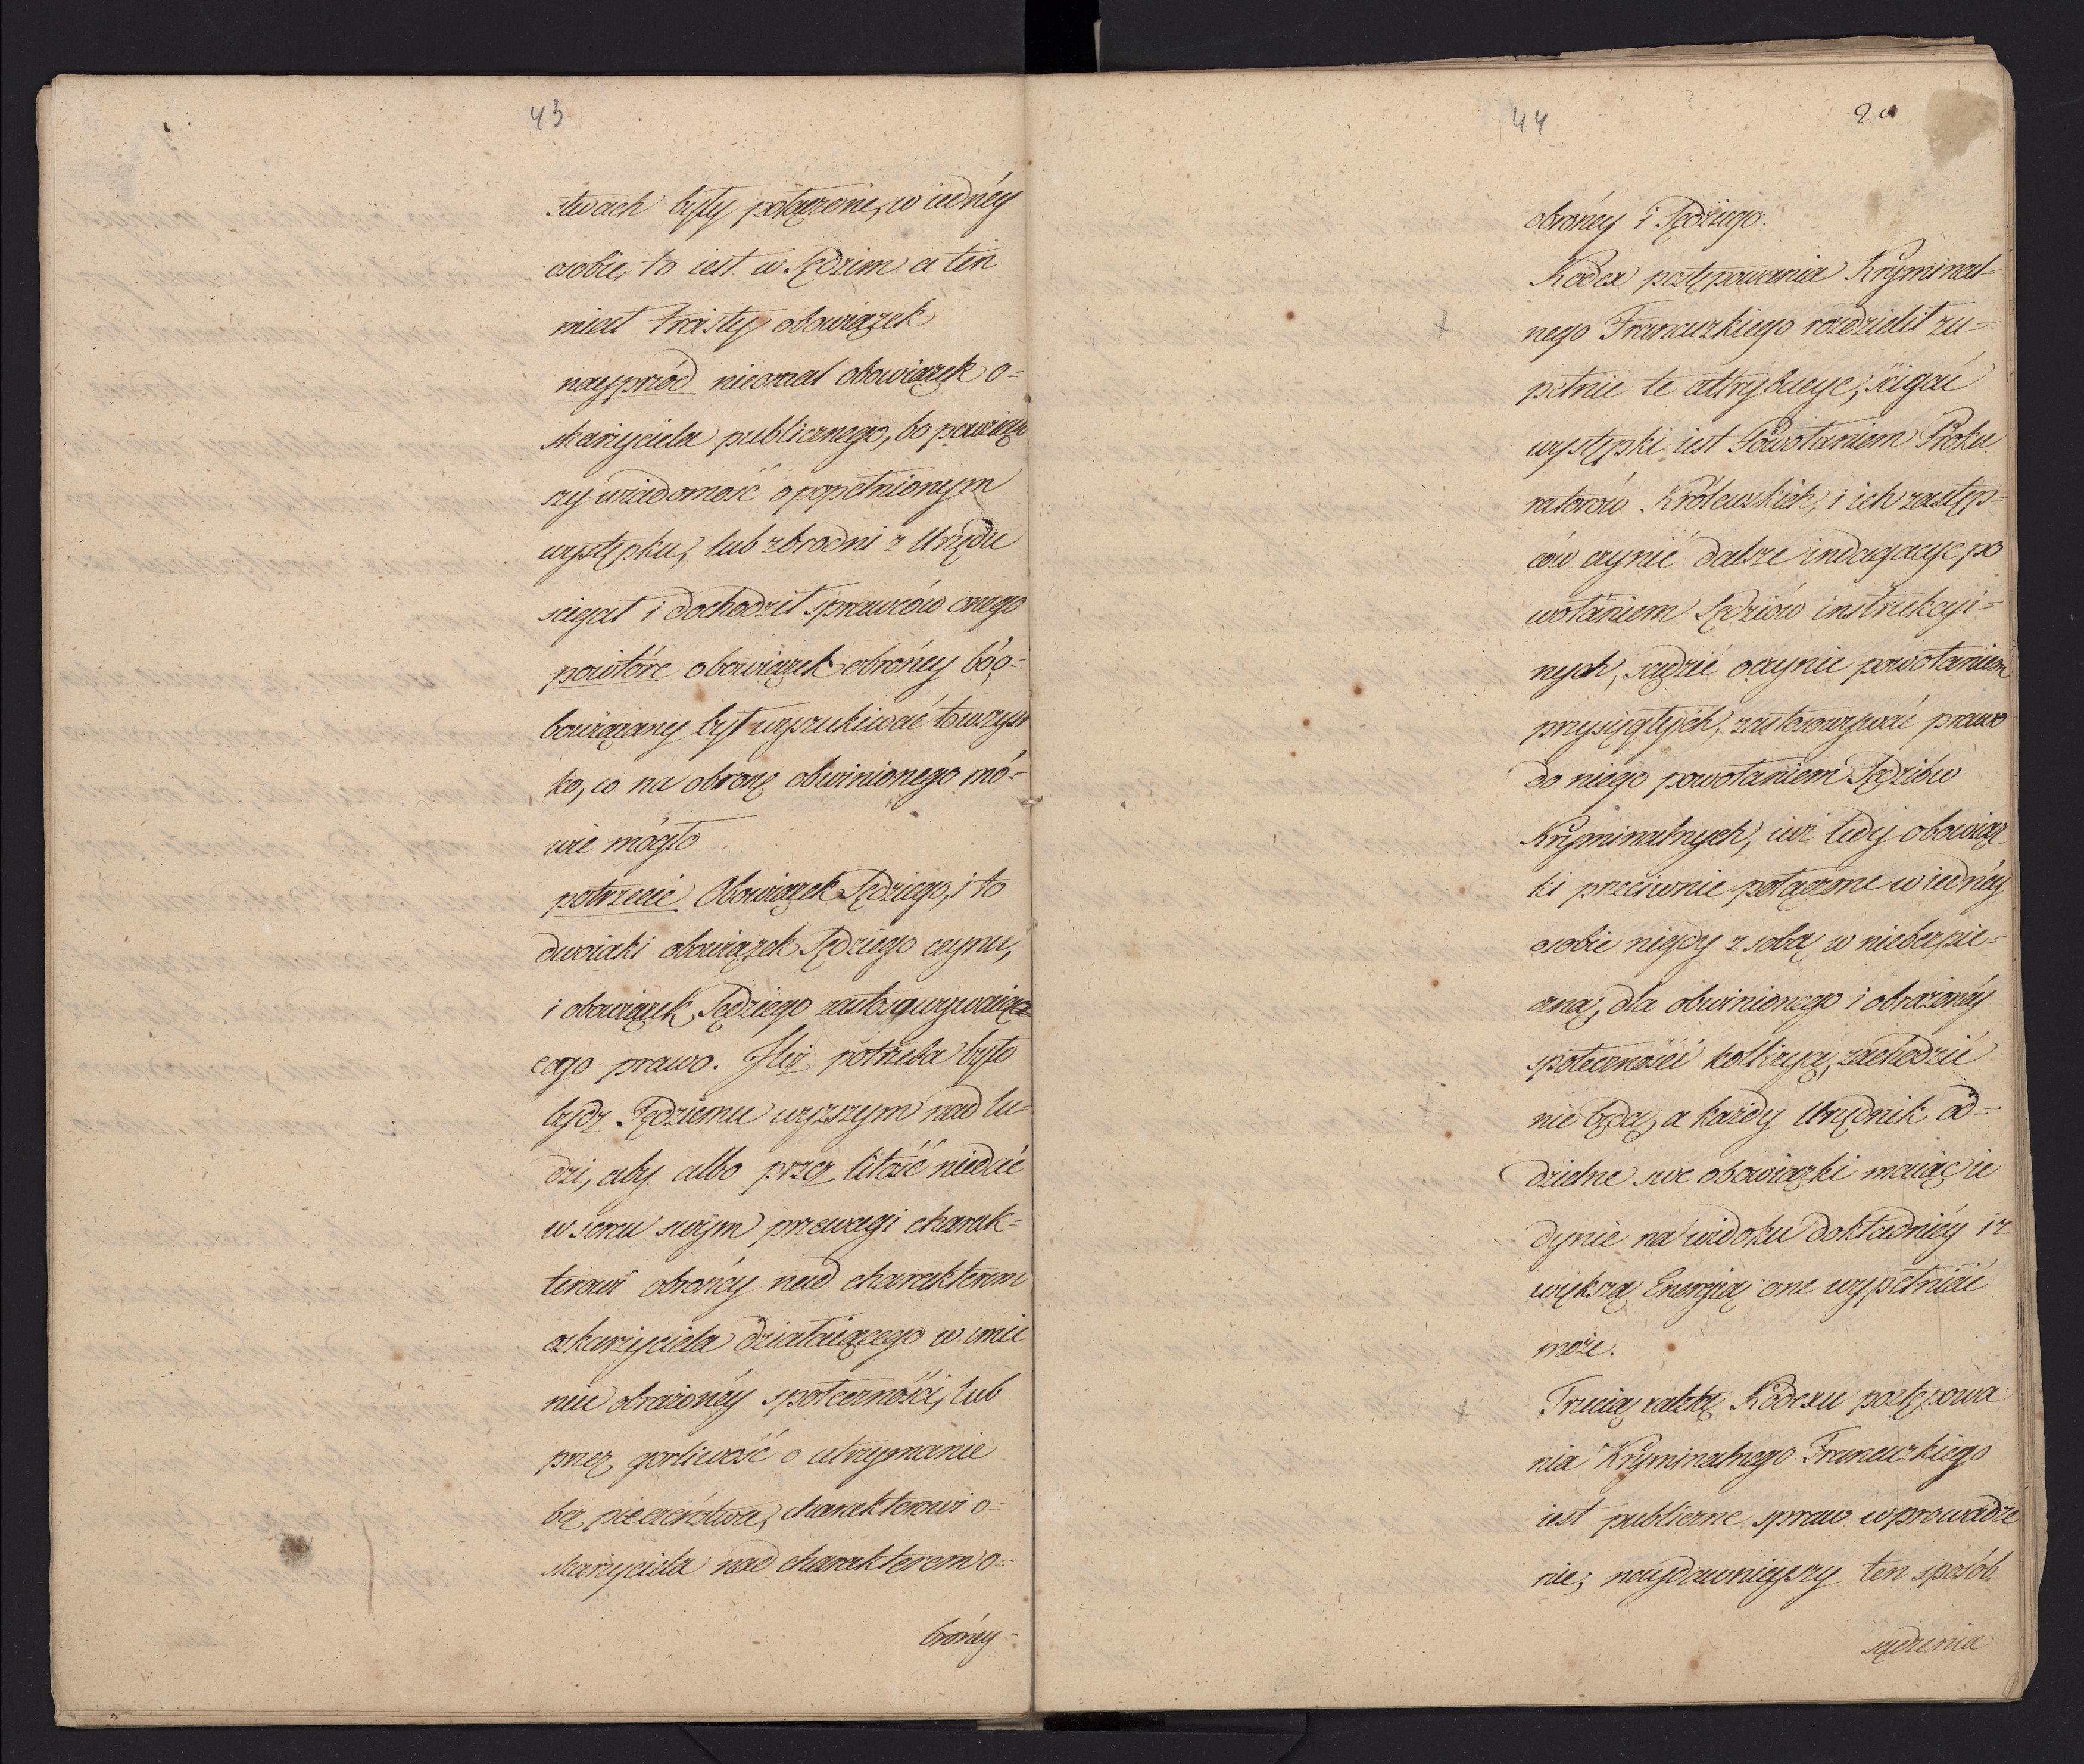 43
stwach były połączone, w iednéy
osobie, to iest w Sędzim a ten
miał troisty obowiązek
nayprzód nieomal obowiązek o=
skarżyciela publicznego, bo powziąw
szy wiadomość o popełnionym
występku, lub zbrodni z Urzędu
scigał i dochodził sprawców onego
powtóre obowiązek obrońcy bo o=
bowiązany był wyszukiwać to wszys
ko, co na obronę obwinionego mó=
wić mogło
potrzecie Obowiązek Sędziego, i to
dwoiaki obowiązek Sędziego czynu,
i obowiązek Sędziego zastosowywaiące=
cego prawo. Ileż potrzeba było
bydz Sędziemu wyższym nad lu=
dzi, aby albo przez litość niedać
w sercu swym przewagi charak=
terowi obrońcy nad charakterem
oskarżyciela działaiącego w imie
niu obrażonéy społeczności, lub
przez gorliwość o utrzymanie
bezpieczeństwa, charakterowi o=
skarżyciela nad charakterem o=
brońcy=
44
20
obrońcy i Sędziego.
Kodex postępowania Kryminal=
nego Francuzkiego rozdzielił zu=
pełnie te attrybucye, ścigać
występki iest Powołaniem Proku
ratorów Królewskich, i ich zastęp=
ców czynić dalsze indagacye po
wołaniem Sędziów instrukcyi=
nych, sądzić o czynie powołaniem
przysięgłych, zastosowywać prawo
do niego powołaniem Sędziów
Kryminalnych, iuż tedy obowiąz
ki przeciwnie połączone w iednéy
osobie nigdy z sobą w niebezpie=
czną, dla obwinionego i obrażonéy
społeczności kollizyą, zachodzić
nie będą, a każdy Urzędnik od=
dzielne swe obowiązki maiąc ie
dynie na widoku dokładniéy i z
większą Energią one wypełniać
może.
Trzecią zaletą Kodexu postępowa
nia Kryminalnego Francuzkiego
iest publiczne spraw wprowadze
nie; naydawnieyszy ten sposób
sądzenia